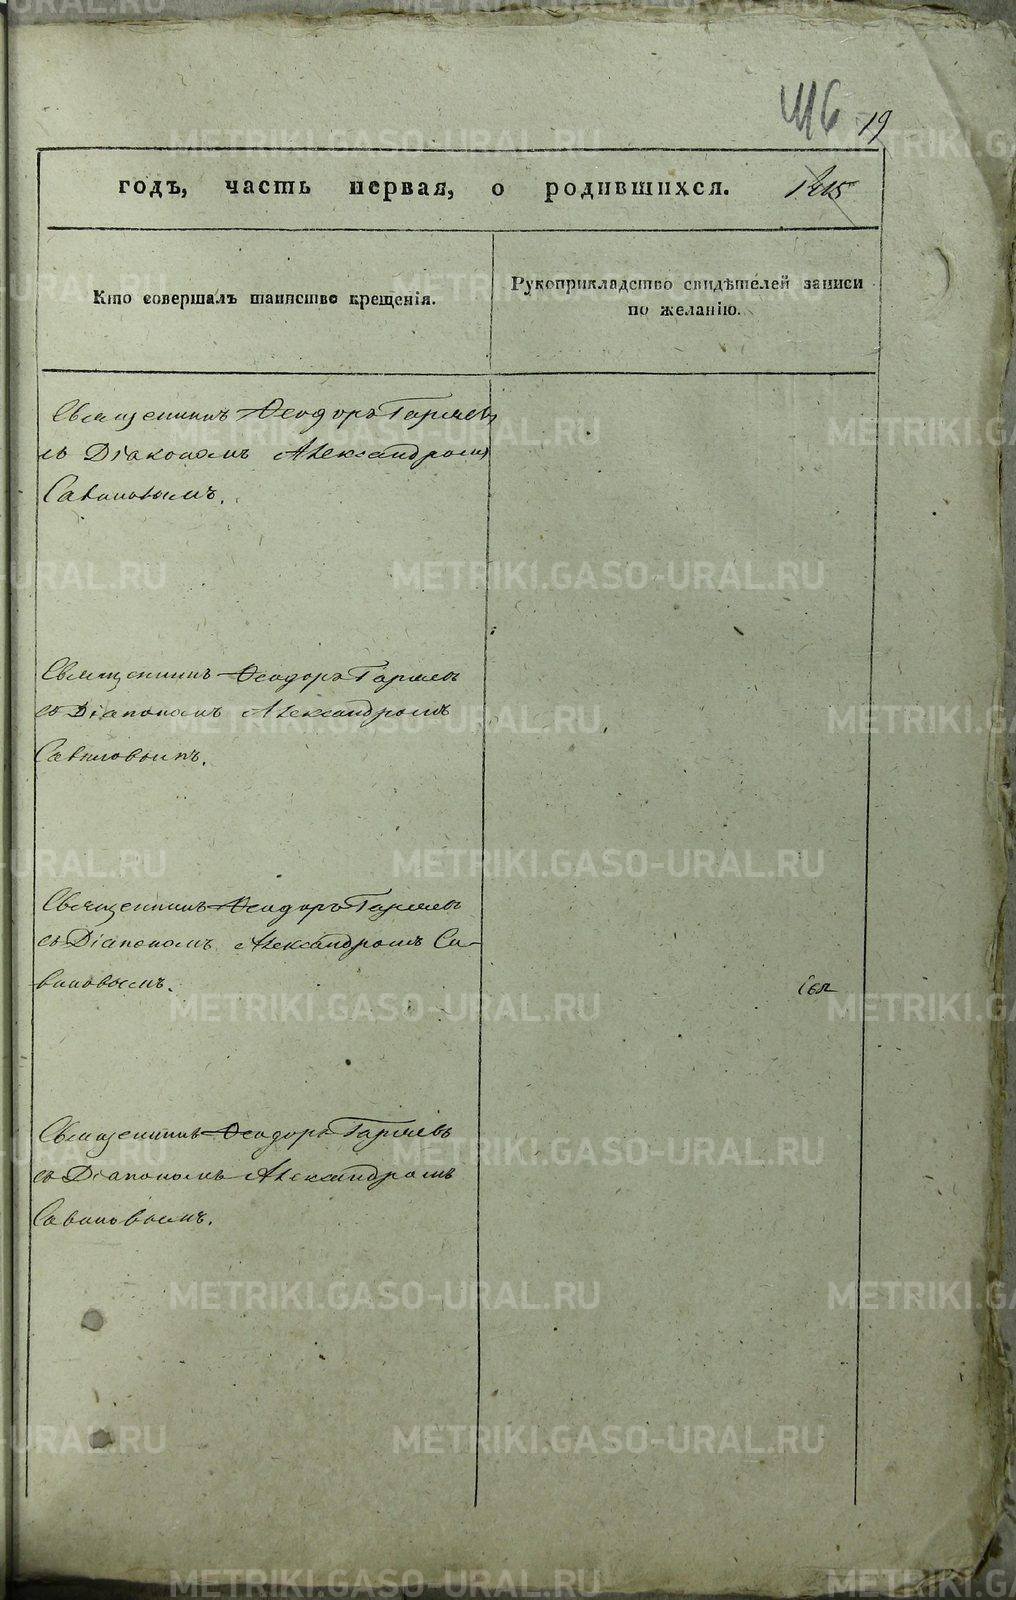 116
19
годъ, часть первая, о родившихся. 1215
Кто совершалъ таинство крещенія.
Рукоприкладство свидѣтелей записи
по желанію.
Священникъ Ѳеодоръ Гаряевъ
съ Діакономъ Александромъ
Савиновымъ.
Священникъ Ѳеодоръ Гаряевъ
съ Діакономъ Александромъ
Савиновымъ.
Священникъ Ѳеодоръ Гаряевъ
съ Діакономъ Александромъ Са-
виновымъ.
Священникъ Ѳеодоръ Гаряевъ
съ Діакономъ Александромъ
Савиновымъ.
METRIKI.GASO-URAL.RU